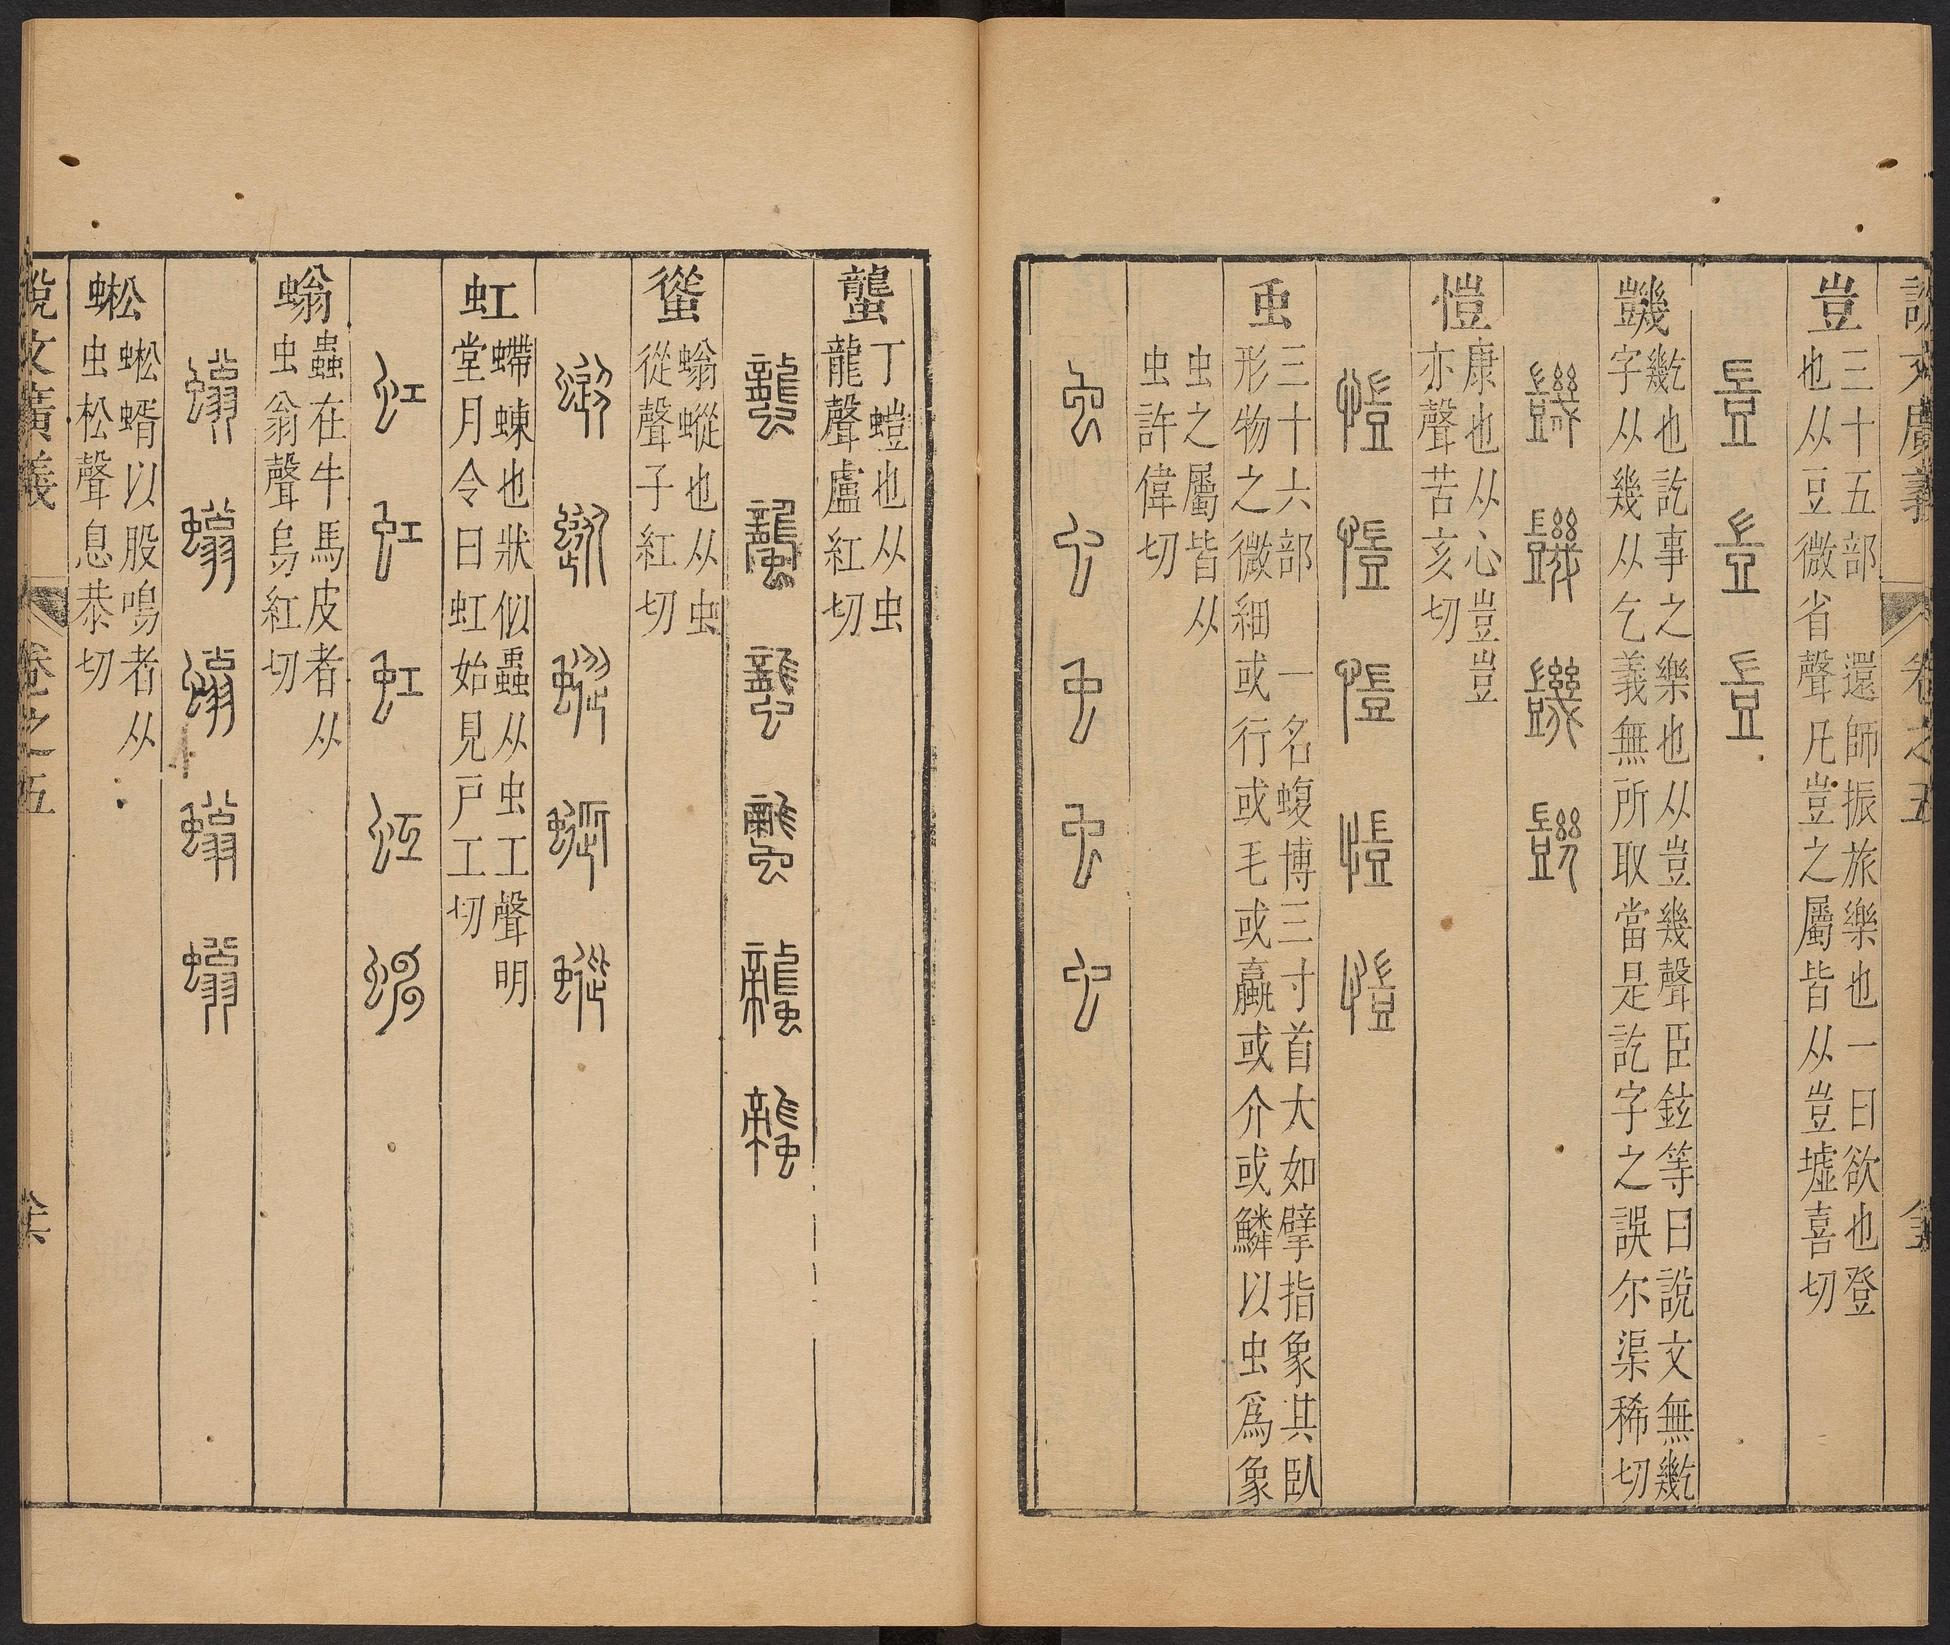 說文廣義 卷之五
豈
三十五部 還師振旅樂也一曰欲也登
也从豆微省聲凡豈之屬皆从豈墟喜切
豈 豈 豈
䡴
𢆻也訖事之樂也从豈幾聲臣鉉等曰說文無𢆻
字从幾从乞義無所取當是訖字之誤尔渠稀切
愷
康也从心豈豈
亦聲苦亥切
愷 愷 愷 愷 愷
虫
三十六部 一名蝮博三寸首大如擘指象其臥
形物之微細或行或毛或蠃或介或鱗以虫爲象
虫之屬皆从
虫許偉切
虫 虫 虫 虫 虫
蠪
丁螘也从虫
龍聲盧紅切
蠪 蠪 蠪 蠪 蠪 蠪
螇
螉蝬也从虫
從聲子紅切
虹
螮蝀也狀似蟲从虫工聲明
堂月令曰虹始見戸工切
虹 虹 虹 虹 虹
螉
蟲在牛馬皮者从
虫翁聲烏紅切
螉 螉 螉 螉 螉
蜙
蜙蝑以股鳴者从
虫松聲息恭切
說文廣義 卷之五